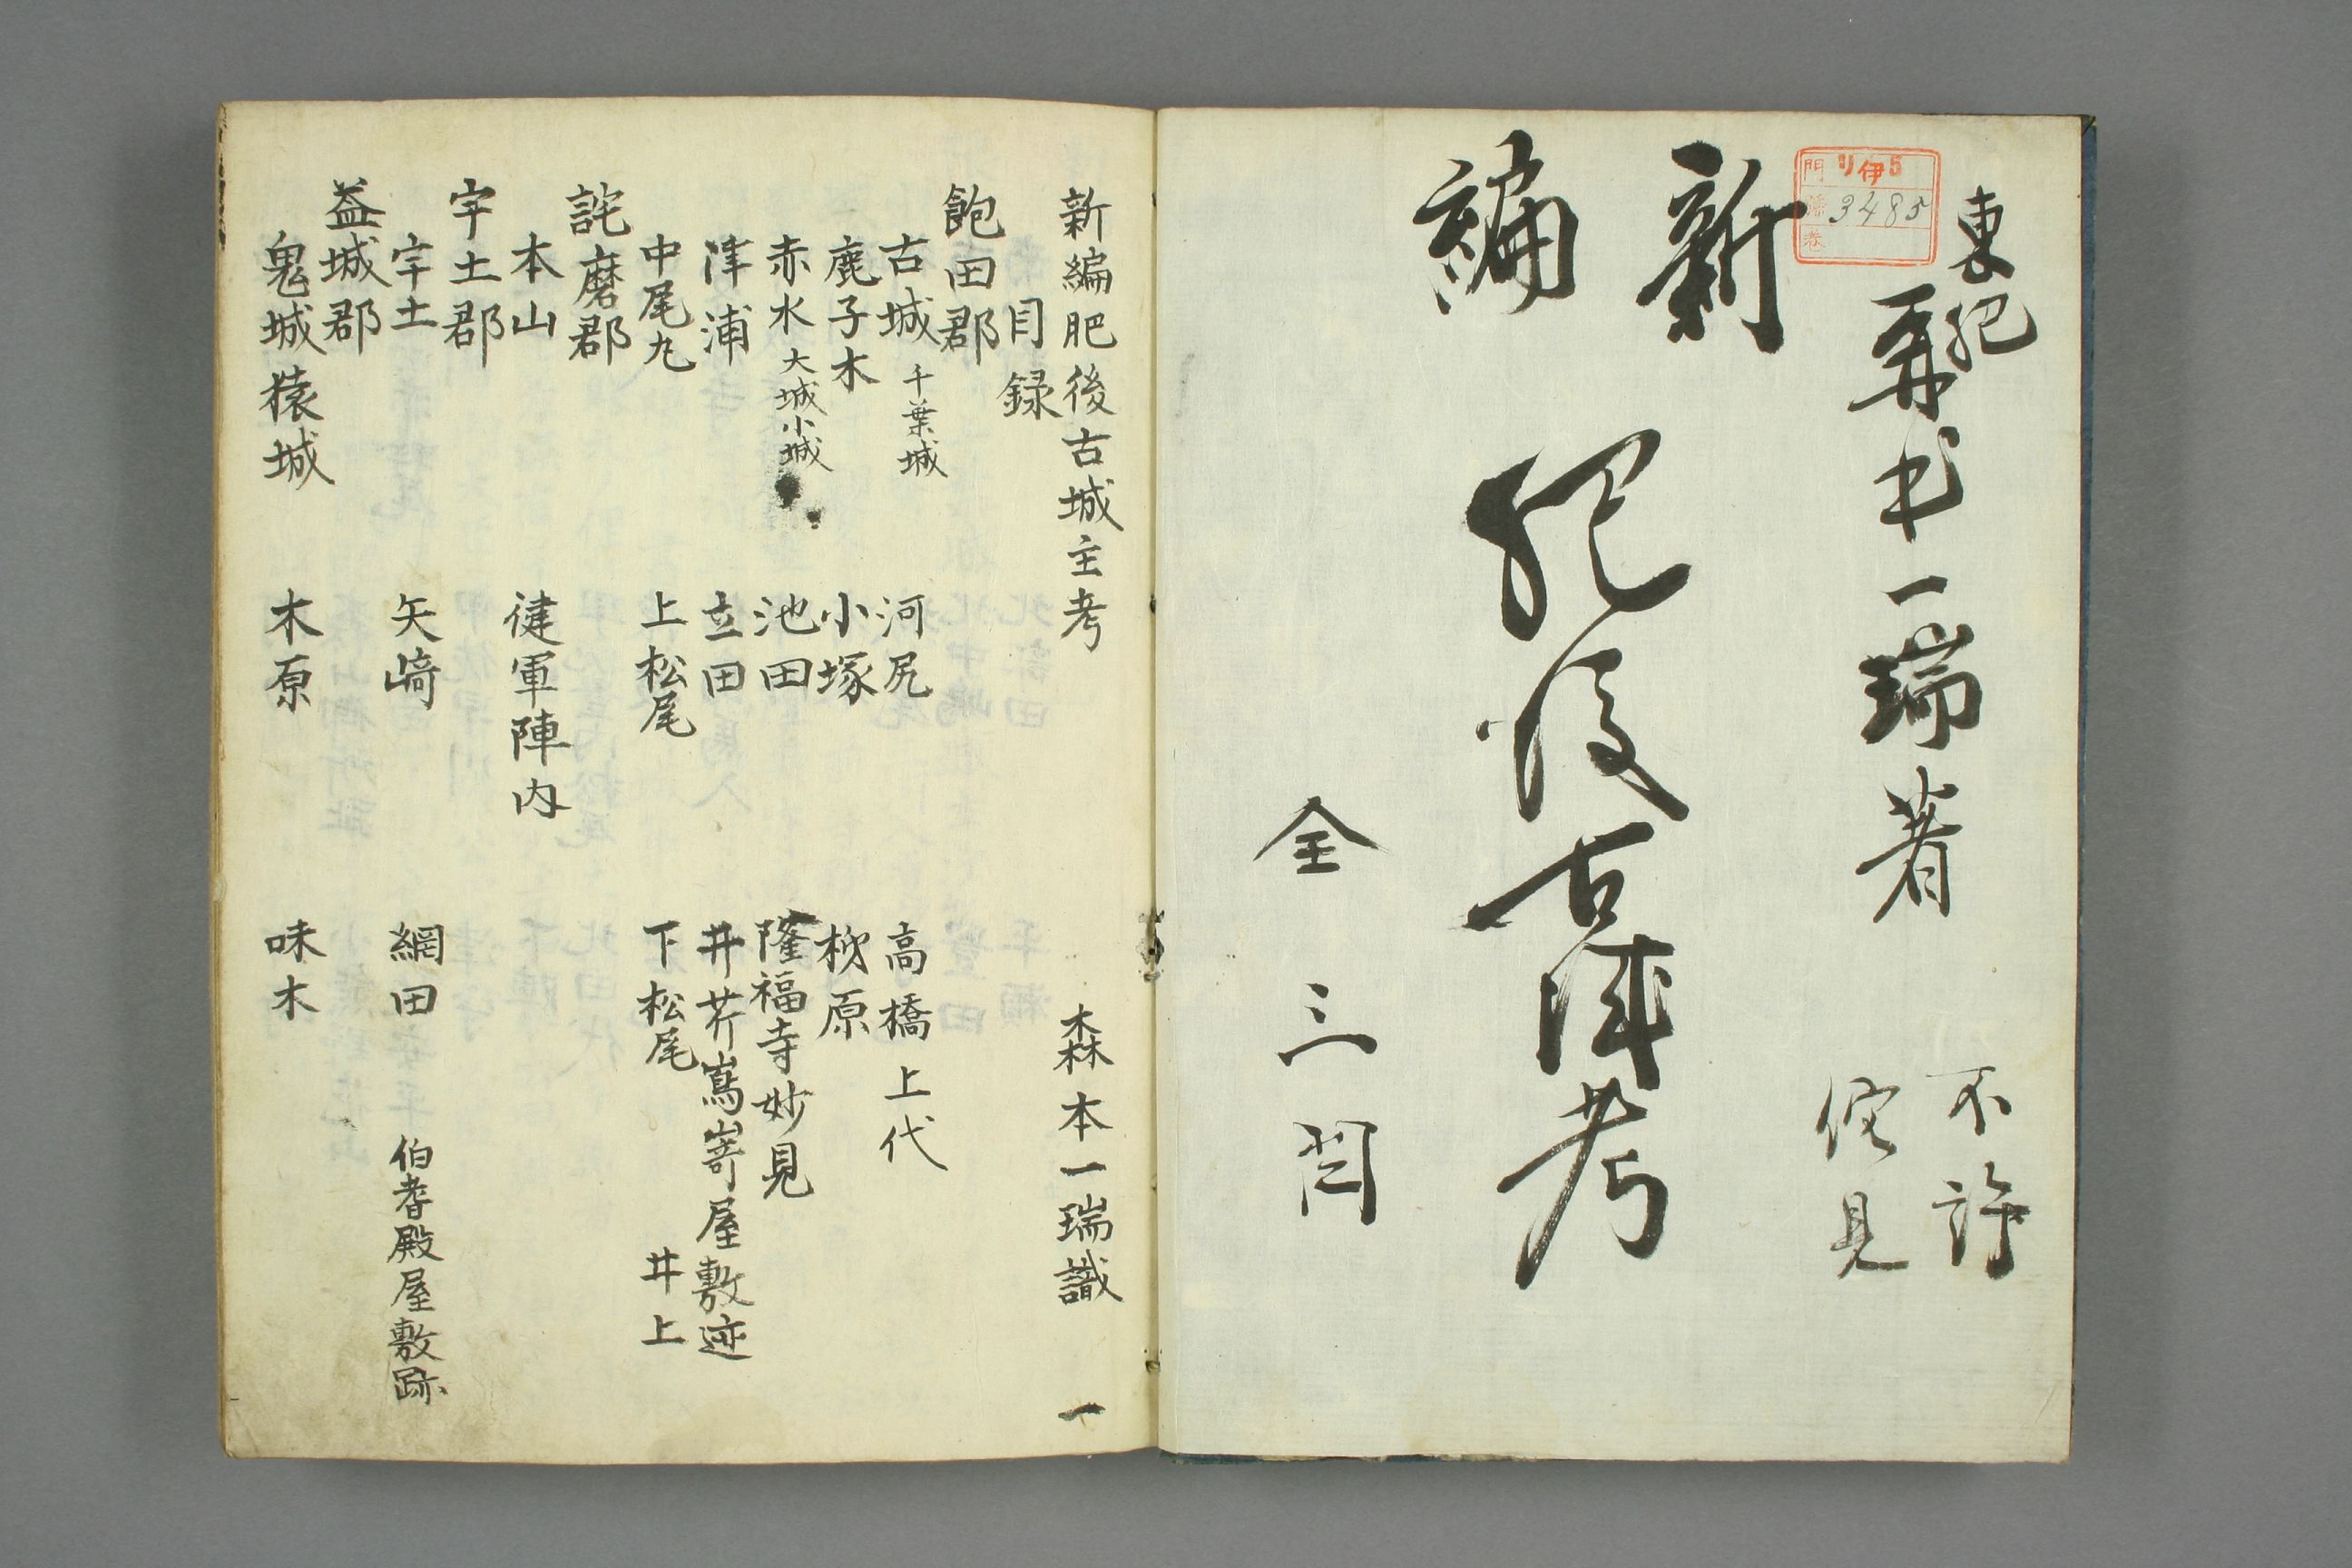 東肥
再出一瑞著
不許
佗見
新編
肥後古城考
全三冊
門 リ伊5
號 3485
卷
新編肥後古城主考 森本一瑞識 一
目録
飽田郡
古城 千葉城 河尻 高橋上代
鹿子木 小塚 楸原
赤水 大城小城 池田 隆福寺妙見
津浦 立田 井芹嶌嵜屋敷迹
中尾丸 上松尾 下松尾 井上
詫磨郡
本山 健軍陣内
宇土郡
宇土 矢崎 網田 伯耆殿屋敷跡
益城郡
鬼城猿城 木原 味木